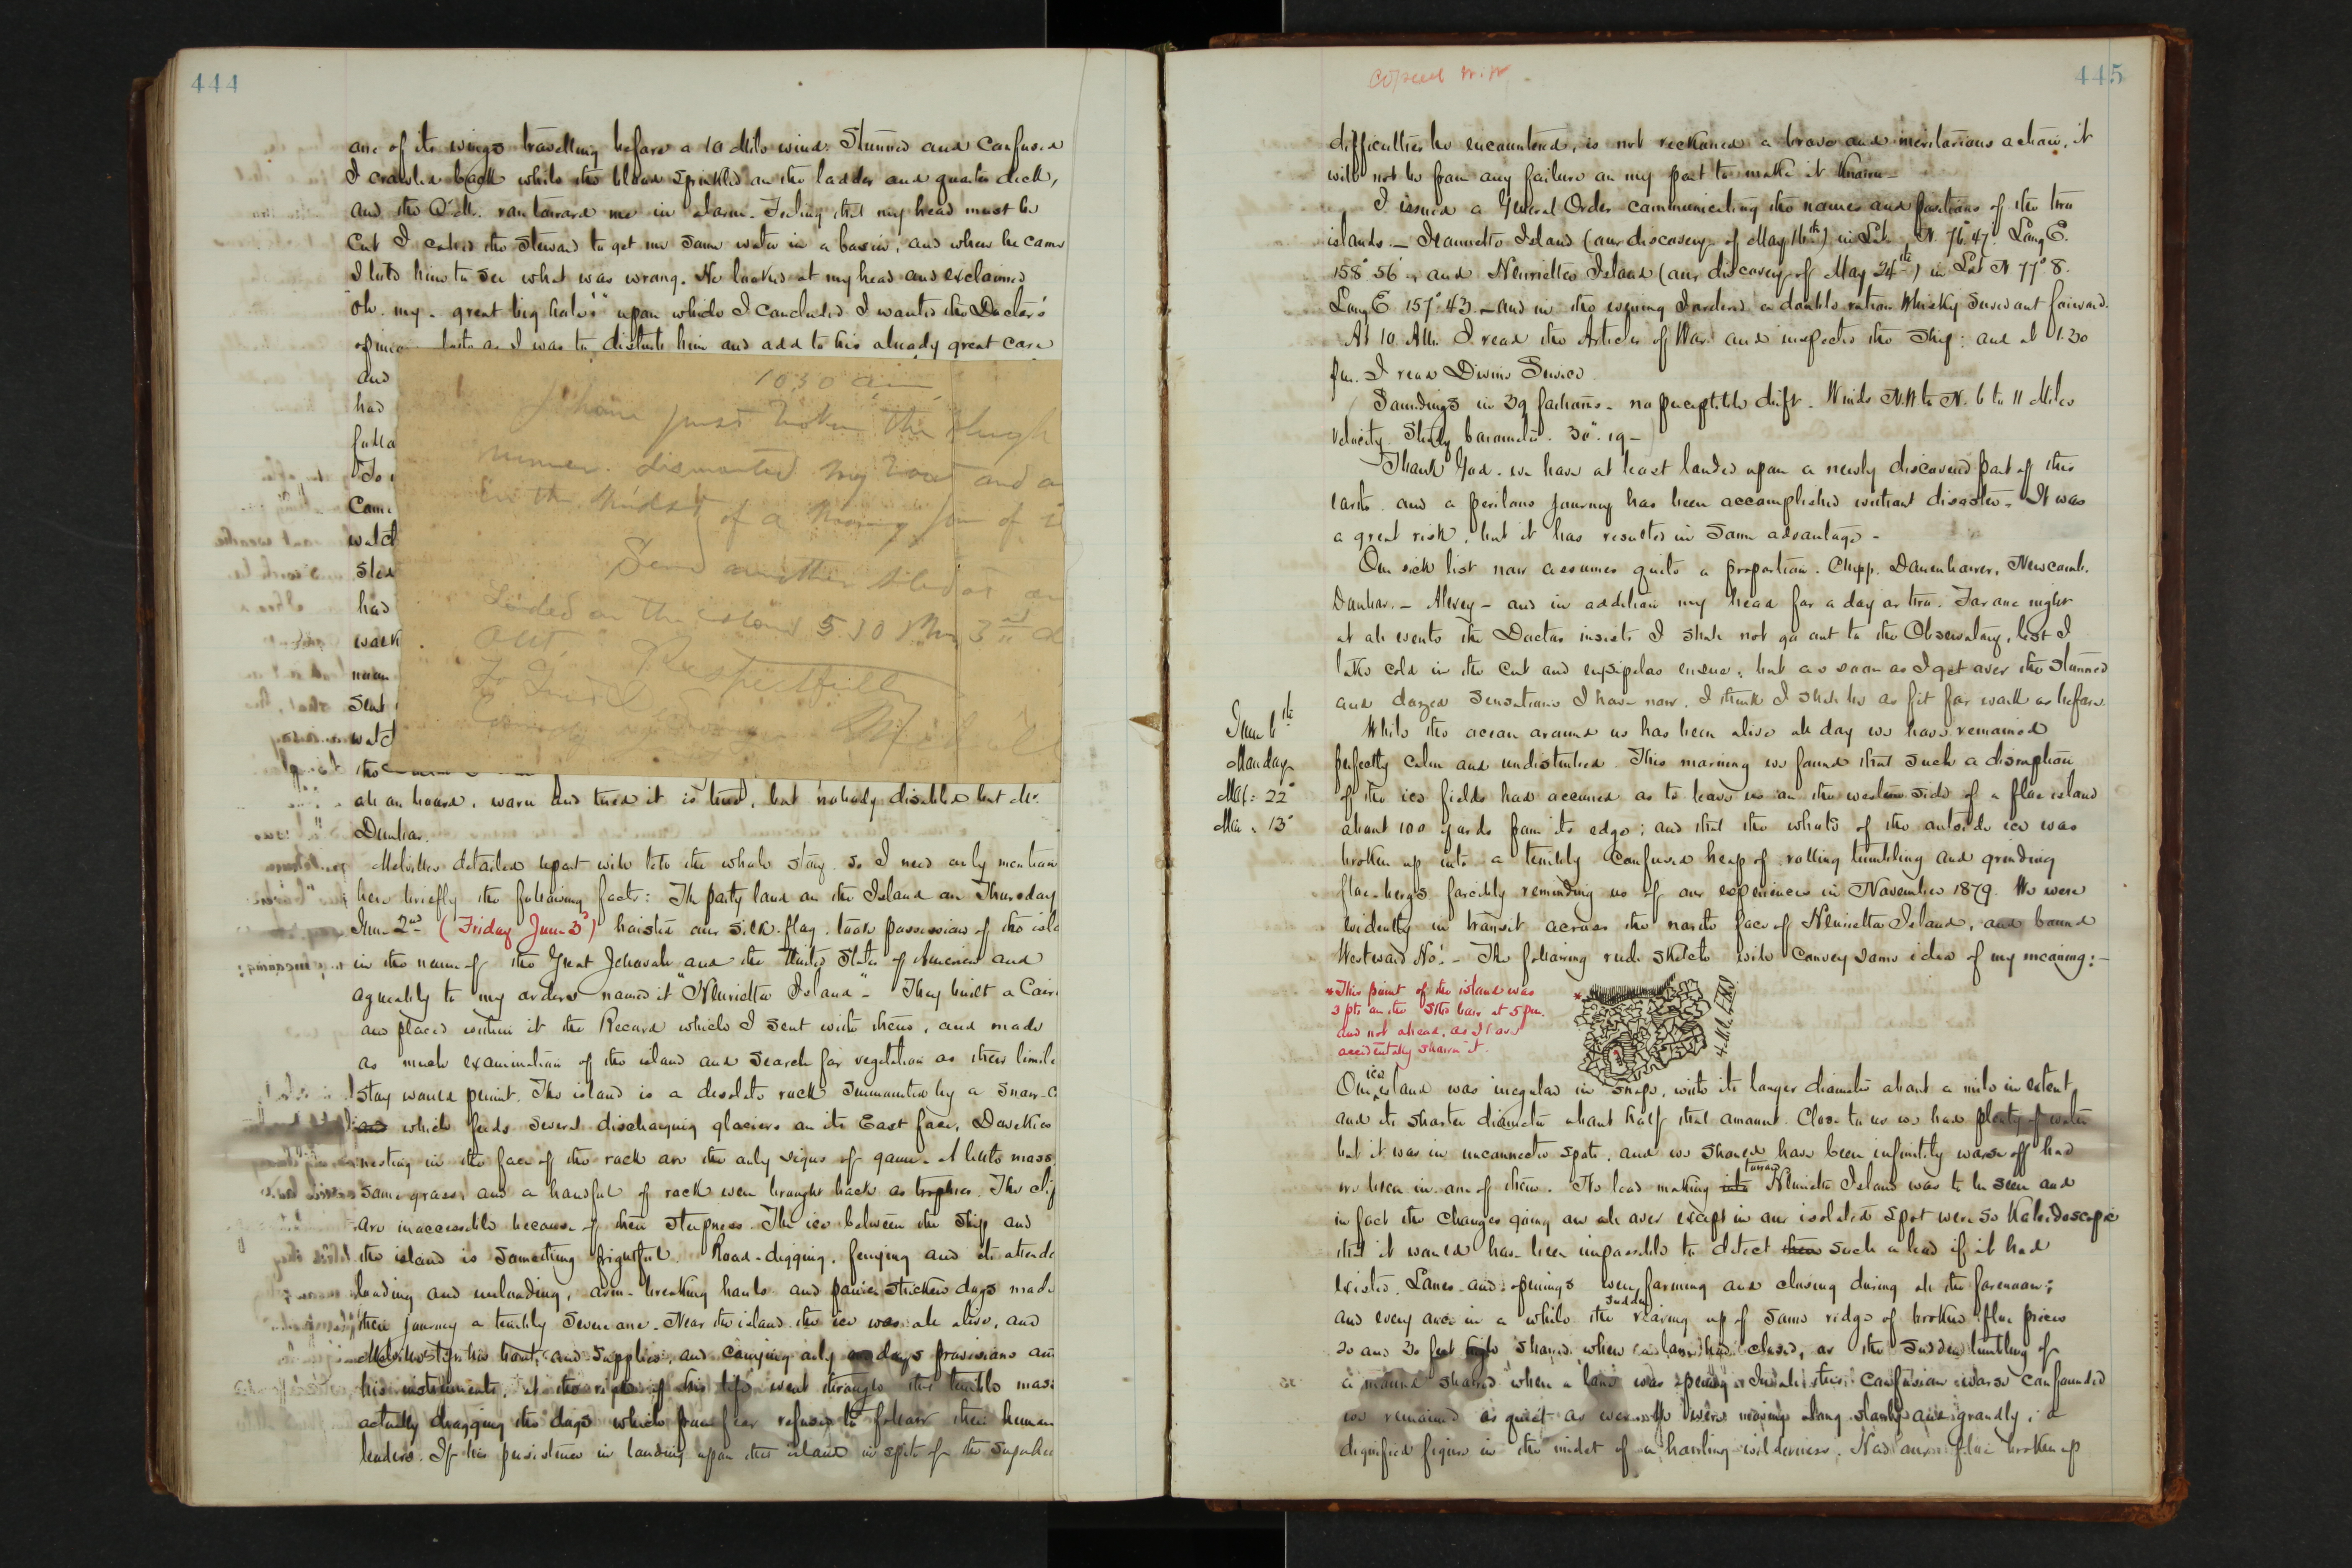 444
one of its wings travelling before a 10 Mile wind. Stunned and Confused
I crawled back while the blood sprinkled on the ladder and quarter deck,
and the Q.M. ran toward me in alarm. Feeling that my head must be
Cut I called the Steward to get me some water in a basin, and when he came
I told him to see what was wrong. He looked at my head and exclaimed
"Oh. my. great big hole!" upon which I concluded I wanted the Doctor's
opinion loth as I was to disturb him and add to his already great care
and
had
follo
To
Came
watch
sled
had
work
noon
sent
watch
the
1030 am
I have just broken the sleigh
runner. dismounted my boat and a
in the midst of a moving
Send another sled
Landed on the island 5.30 3rd
out
Respectfully
Melvill
all on board, worn and tired it is true, but nobody disabled but Mr.
Dunbar.
Melville's detailed report will tell the whole story. So I need only mention
here briefly the following facts: The party land on the Island on Thursday
June 2nd (Friday June 3d) hoisted our silk flag. took possession of the isla
in the name of the Great Jehovah and the United States of America and
agreeably to my orders named it "Henrietta Island" - They built a Cairn
and placed within it the Record which I sent with them, and made
as much examination of the island and search for vegetation as their limite
stay would permit. The island is a desolate rock surmounted by a snow-c
and which feeds several discharging glaciers on its East face. Dovekies
nesting in the face of the rock are the only signs of game. A little moss,
some grass, and a handful of rock were brought back as trophies. The clif
are inaccessible because of their steepness. The ice between the ship and
the island is something frightful. Road-digging, ferrying and its attenda
loading and unloading, arm-breaking hauls and panic stricken dogs made
their journey a terribly severe one. Near the island the ice was all alive, and
Melville left his boat, and supplies, and carrying only a days provisions an
his instruments, at the risk of his life went through the terrible mass
actually dragging the dogs which from fear refused to follow their human
leaders. If this persistence in landing upon this island in spite of the superhu
Copied
445
difficulties he encountered, is not reckoned a brave and meritorious action, it
will not be from any failure on my part to make it known -
I issued a General Order communicating the names and positions of the two
islands. - Jeannette Island (our discovery of May 16th) in Lat. N. 76°47'. Long E.
158° 56', and Henrietta Island (our discovery of May 24th) in Lat N 77° 8.
Long E 157°.43. - and in the evening I ordered a double ration Whisky served out forward.
At 10 AM. I read the Articles of War and inspected the Ship: and at 1.30
pm. I read Divine Service
Soundings in 39 fathoms - no perceptible drift. Winds N.W to N. 6 to 11 Miles
velocity. Steady barometer. 30".19 -
Thank God. we have at least landed upon a newly discovered part of this
earth. and a perilous journey has been accomplished without disaster. It was
a great risk, but it has resulted in some advantage -
Our sick list now assumes quite a proportion. Chipp. Danenhower. Newcomb.
Dunbar. - Alexey - and in addition my head for a day or two. For one night
at all events the Doctor insists I shall not go out to the Observatory, lest I
take cold in the cut and erysipelas ensue; but as soon as I get over the stunned
and dazed sensations I have now, I think I shall be as fit for work as before.
June 6th
Monday
Max: 22°
Min: 13°
While the ocean around us has been alive all day we have remained
perfectly calm and undisturbed. This morning we found that such a disruption
of the ice fields had occurred as to leave us on the western side of a floe island
about 100 yards from its edge; and that the whole of the outside ice was
broken up into a terribly confused heap of rolling tumbling and grinding
floe-bergs forcibly reminding us of our experiences in November 1879. We were
evidently in transit across the north face of Henrietta Island, and bound
Westward Ho! - The following rude sketch will convey some idea of my meaning: -
*This point of the island was
3 pts on the Stbd bow at 5 pm.
and not ahead, as I have
accidentally shown it.
4 Miles
Our ice island was irregular in shape, with its longer diameter about a mile in extent,
and its shorter diameter about half that amount. Close to us we had plenty of water
but it was in unconnected spots, and we should have been infinitely worse off had
we been in one of them. No lead making into toward Henrietta Island was to be seen and
in fact the changes going on all over except in our isolated spot were so Kaleidoscopic
that it would have been impossible to detect them such a lead if it had
existed. Lanes and openings were forming and closing during all the forenoon;
and every once in a while the sudden rearing up of some ridge of broken floe pieces
20 and 30 feet high showed where a lane had closed, or the sudden tumbling of
a mound showed when a lane was opening. In all this confusion worse confounded
we remained as quiet as usual. We were moving along slowly and grandly, a
dignified figure in the midst of a howling wilderness. Had our floe broken up